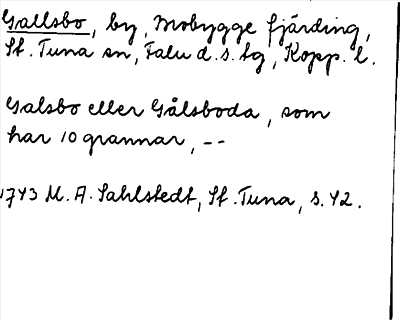 Gallsbo, by, Mobygge fjärding,
St. Tuna sn, Falu d.s. tg, Kopp. l.
Galsbo eller Gålsboda, som
har 10 grannar, --
1743 M. A. Sahlstedt, St. Tuna, s. 42.